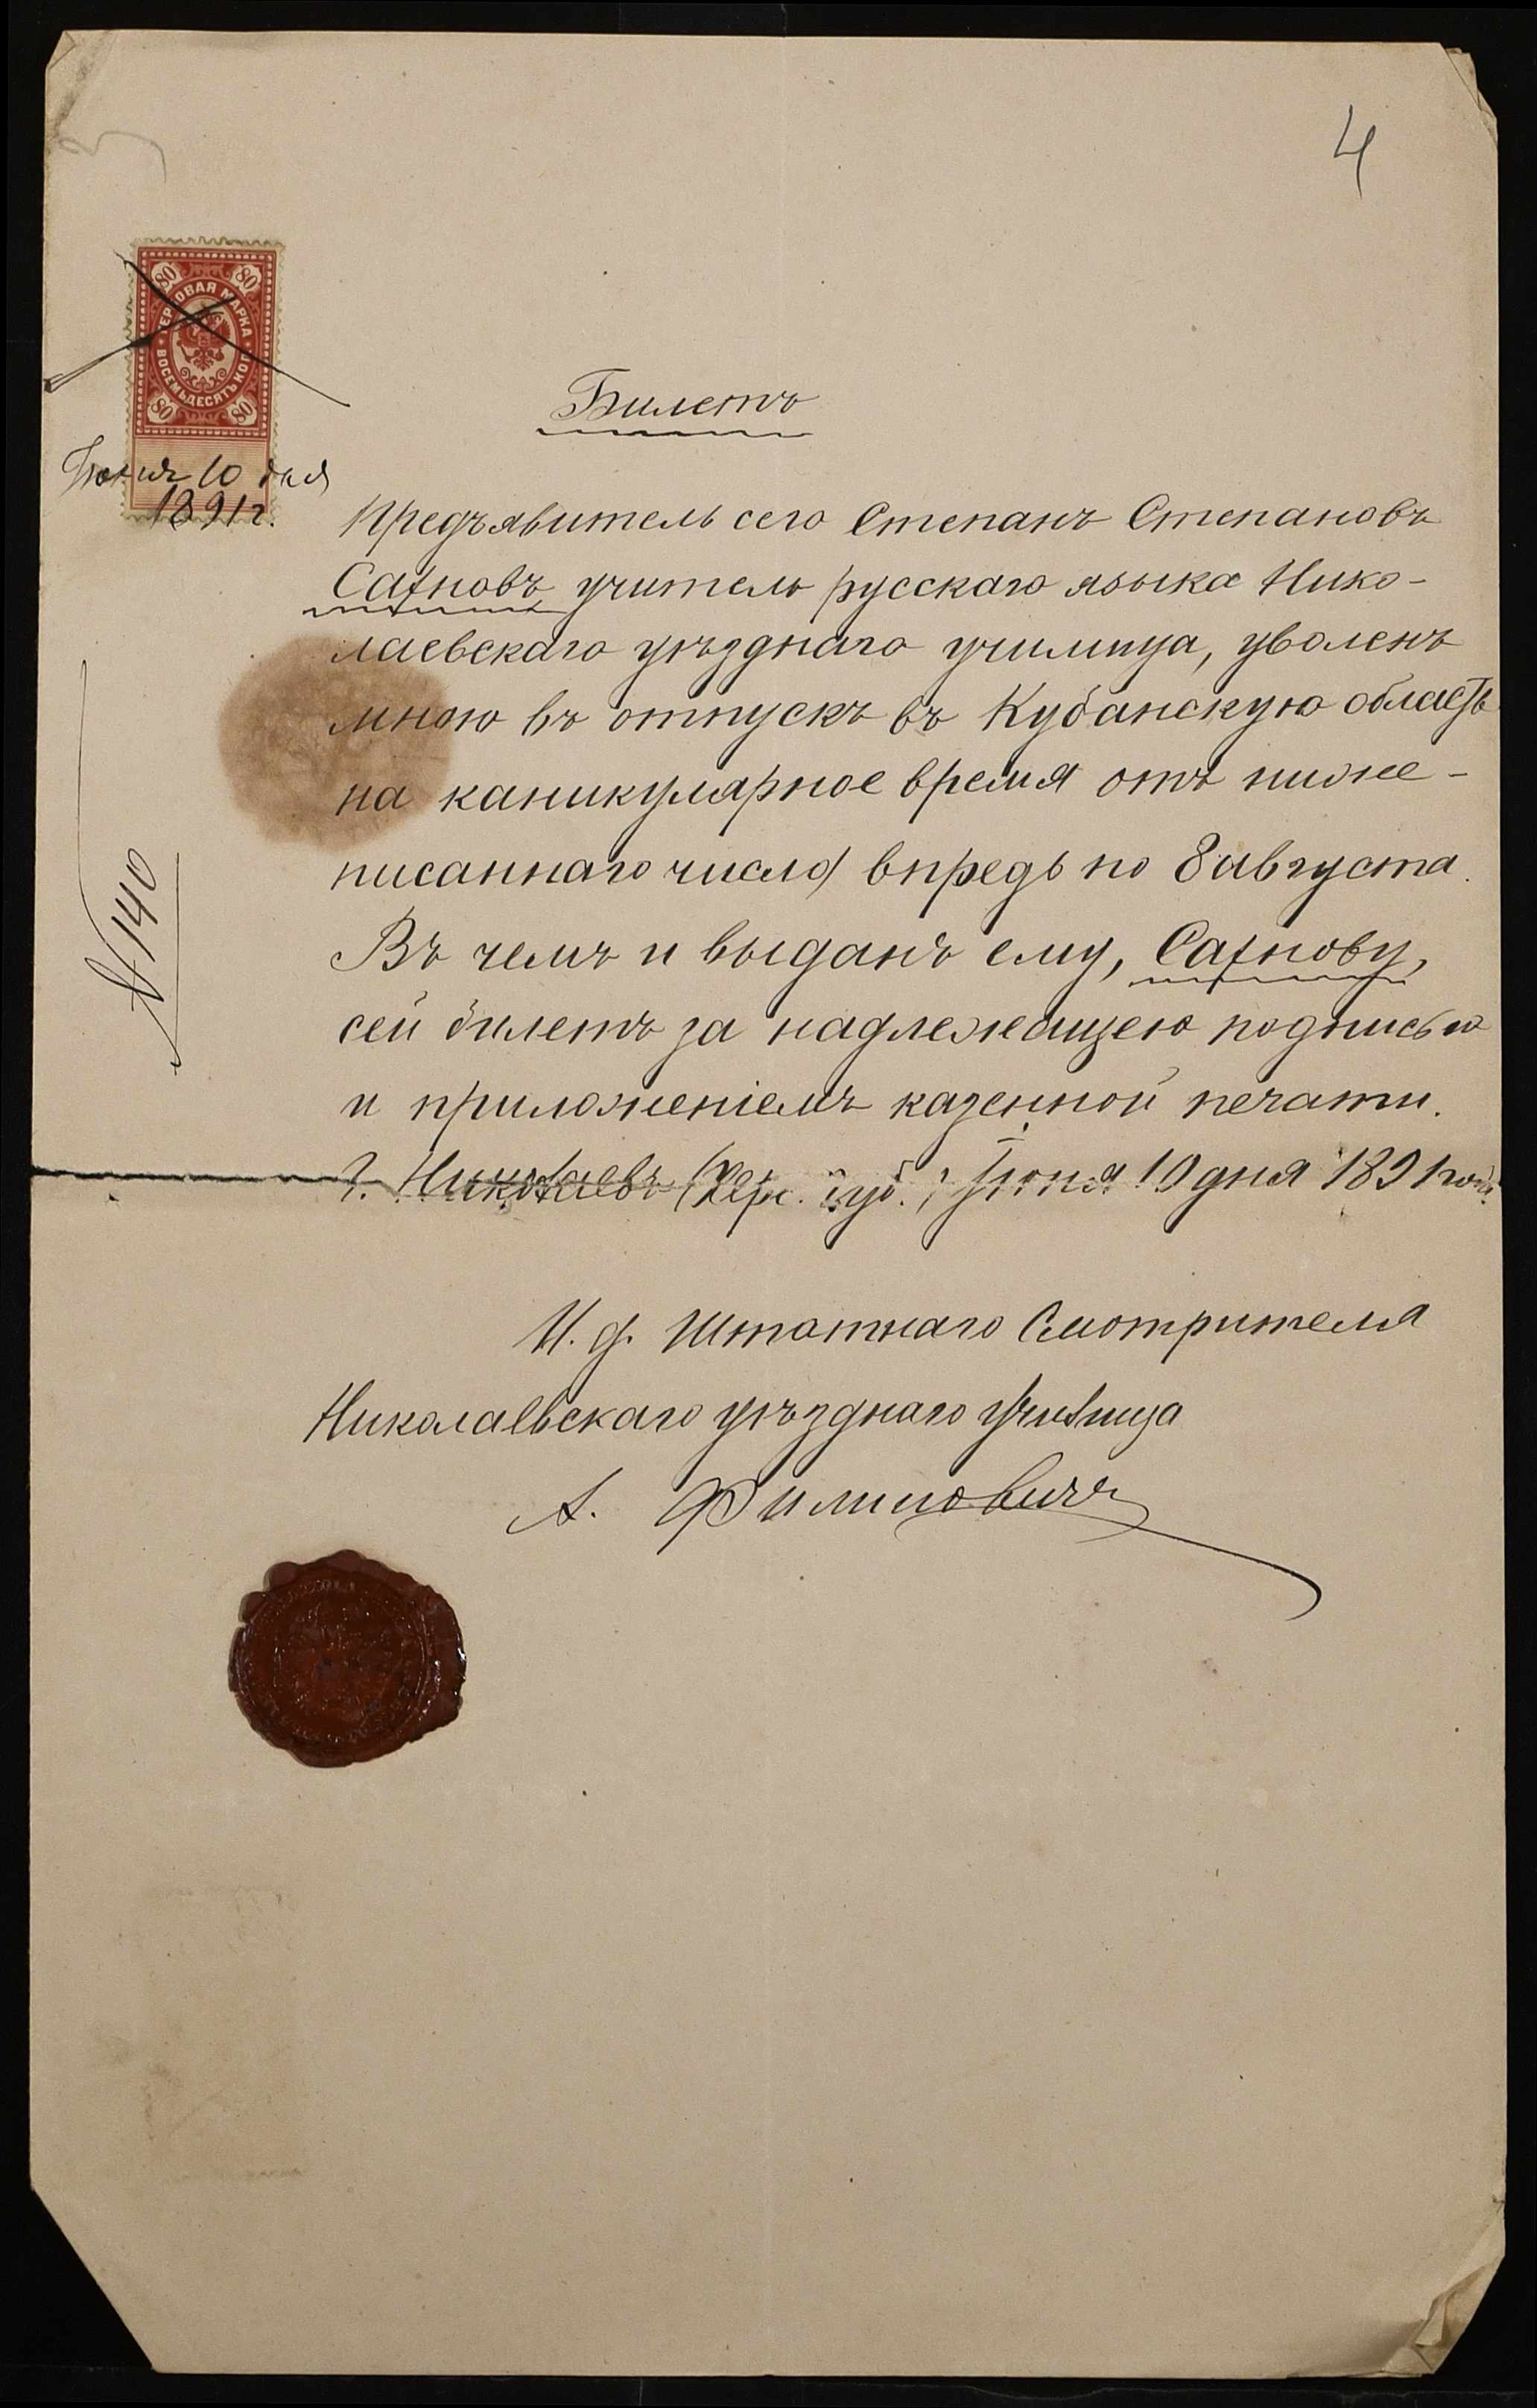 4
80 80
ГЕРБОВАЯ МАРКА
ВОСЕМЬДЕСЯТЪ КОП.
80 80
Іюня 10 дня
1891 г.
Билетъ
Предъявитель сего Степанъ Степановъ
учитель русскаго языка Нико-
лаевскаго уѣзднаго училища, уволенъ
мною въ отпускъ въ Кубанскую область
на каникулярное время отъ ниже-
писаннаго числа впредь по 8 августа.
Въ чемъ и выданъ ему,
сей билетъ за надлежащею подписью
и приложеніемъ казенной печати.
Г. Николаевъ (Херс. губ.) Іюня 10 дня 1891 года.
№ 140
И. д. Штатнаго Смотрителя
Николаевскаго уѣзднаго Училища
А. Филиповичъ